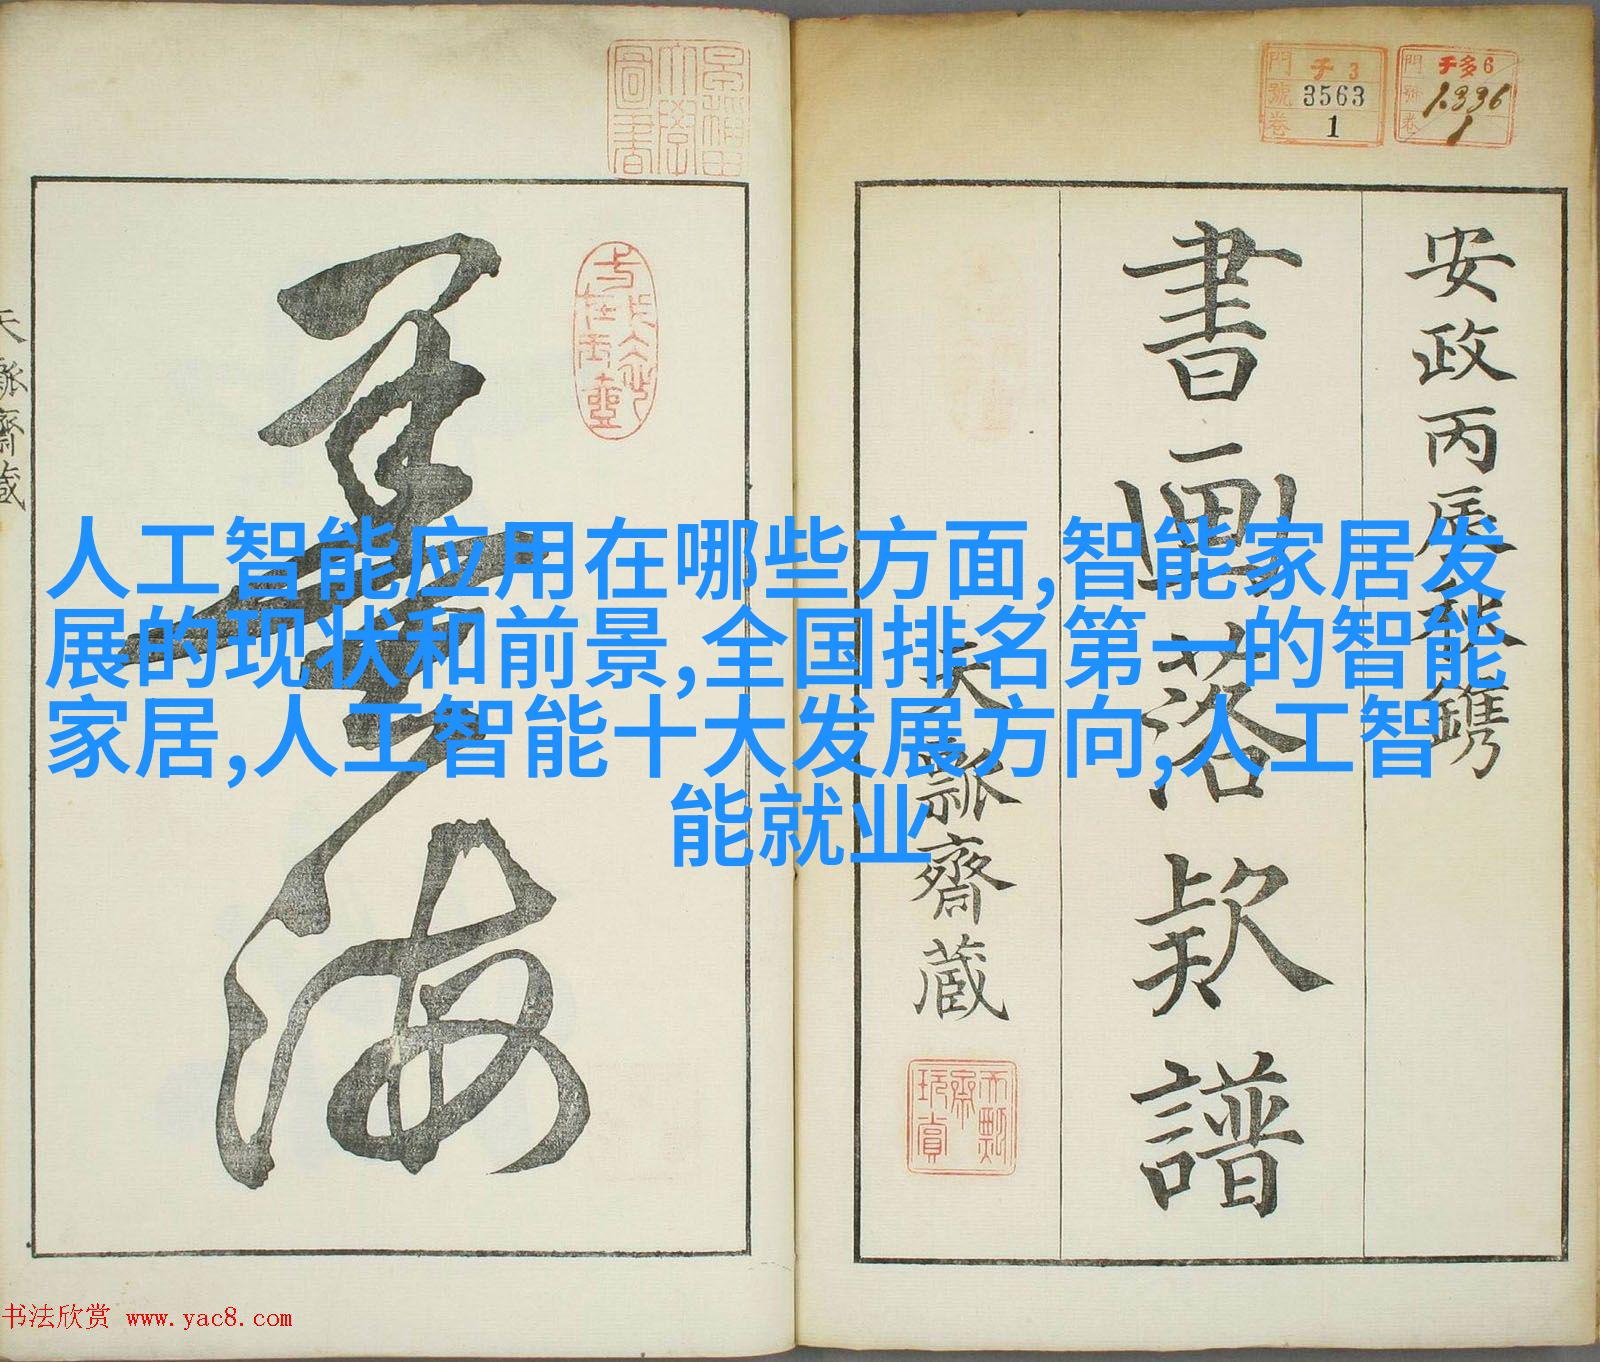 人工智能应用在哪些方面,智能家居发
展的现状和前景,全国排名第一的智能
家居,人工智能十大发展方向,人工智
能就业
安政丙辰秋鐫
書画落款譜
天瓢齋蔵
墨海
門 チ 3
號 3563
卷 1
門 千多6
號 1336
卷 1
天瓢齋蔵
书法欣赏 www.yac8.com